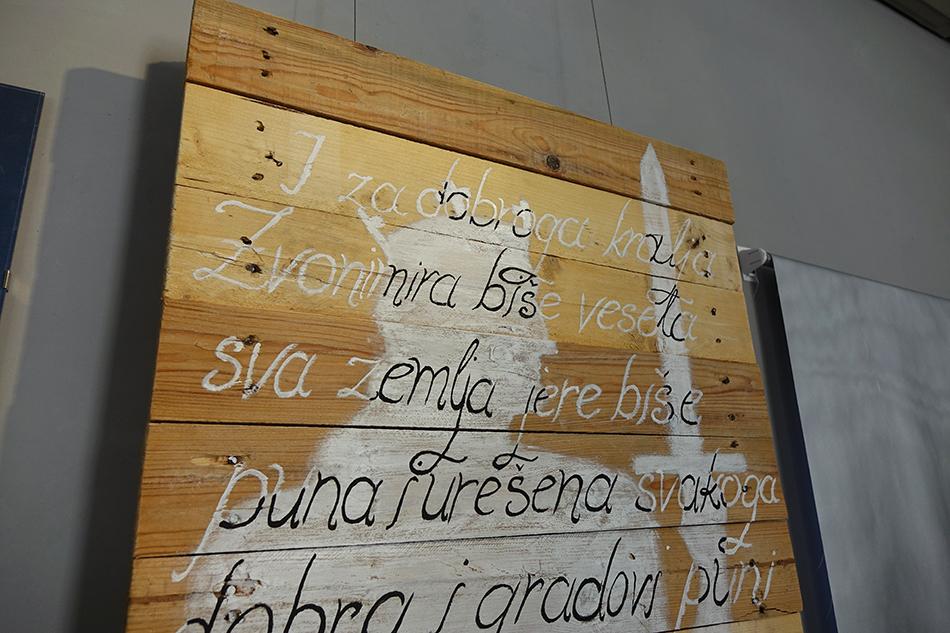 I za dobroga kralja
Zvonimira biše vesela
sva zemlja jere biše
puna i urešena svakoga
dobra i gradovi puni